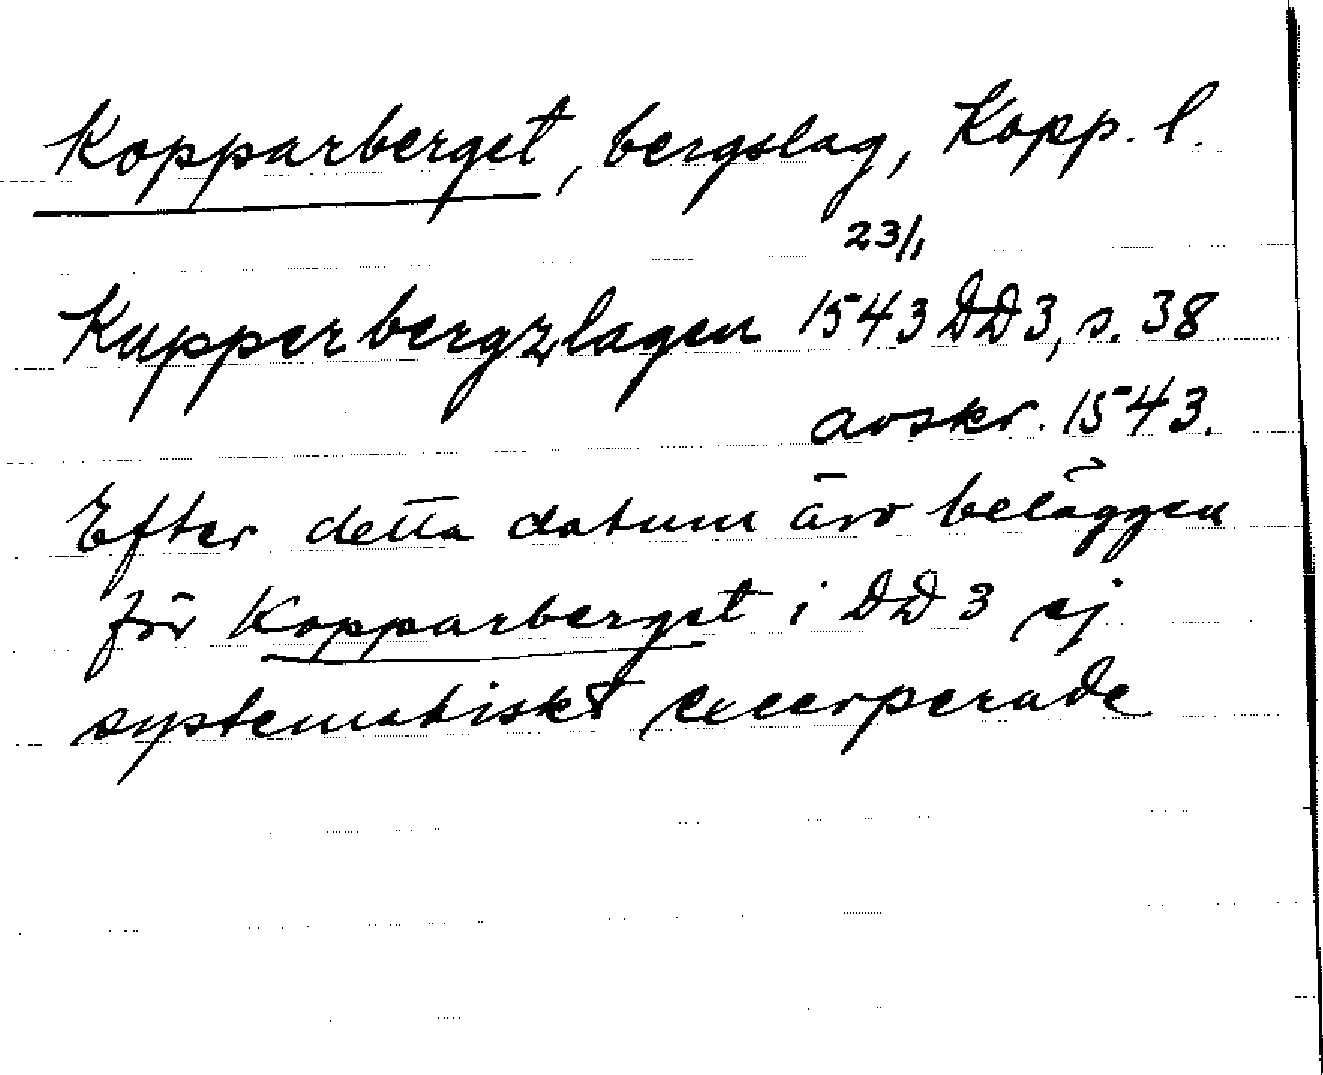 Kopparberget, bergslag, Kopp. l.
23/1
Kupperbergzlagen 1543 DD3, s. 38
avskr. 1543.
Efter detta datum äro beläggen
för Kopparberget i DD 3 ej
systematiskt excerperade